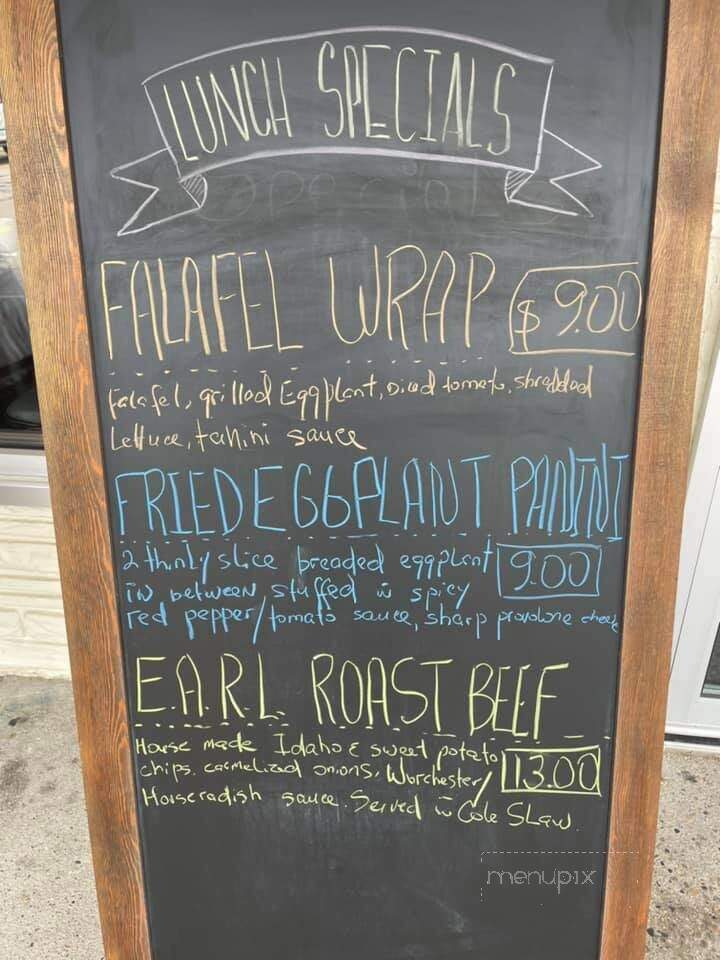 LUNCH SPECIALS
Specials
FALAFEL WRAP $ 9.00
falafel, grilled Eggplant, Diced tomato, shredded
Lettuce, tahini sauce
FRIED EGGPLANT PANINI
2 thinly slice breaded eggplant 9.00
in between, stuffed w spicy
red pepper/tomato sauce, sharp provolone cheese
E.A.R.L. ROAST BEEF
House made Idaho & sweet potato
chips, carmelized onions, Worchester/ 13.00
Horseradish sauce. Served w Cole SLaw.
menupix